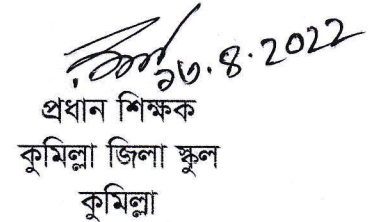 ১৩.৪.২০২২
প্রধান শিক্ষক
কুমিল্লা জিলা স্কুল
কুমিল্লা